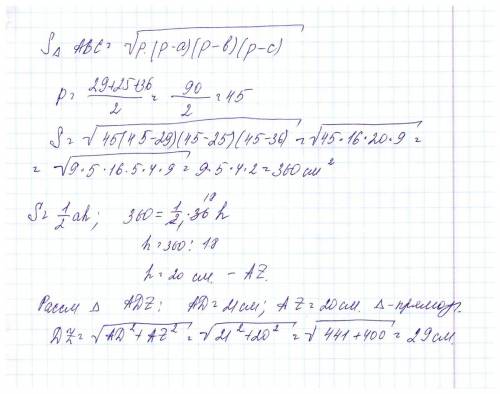 S△ ABC = √p·(p-a)(p-в)(p-c)
p = 29+25+36/2 = 90/2 = 45
S = √45(45-29)(45-25)(45-36) = √45·16·20·9 =
= √9·5·16·5·4·9 = 9·5·4·2 = 360 см²
S = 1/2 ah; 360 = 1/2 · 36 h 18
h = 360 : 18
h = 20 см. – AZ.
Рассм △ ADZ: AD = 21 см; AZ = 20 см. △-прямоуг.
DZ = √AD²+AZ² = √21²+20² = √441+400 = 29 см.